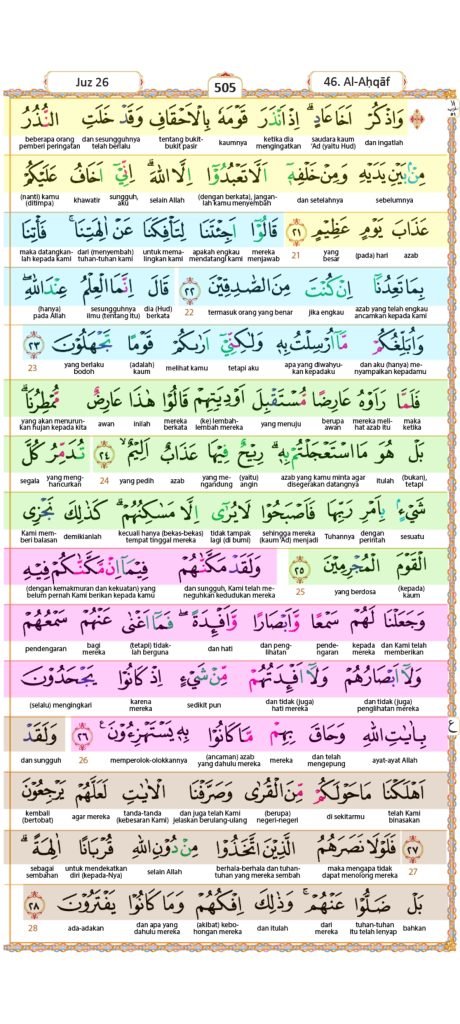 Juz 26
505
46. Al-Aḥqāf
وَاذْكُرْ اَخَا عَادٍۗ اِذْ اَنْذَرَ قَوْمَهٗ بِالْاَحْقَافِ وَقَدْ خَلَتِ النُّذُرُ
beberapa orang pemberi peringatan dan sesungguhnya telah berlalu tentang bukit-bukit pasir kaumnya ketika dia mengingatkan saudara kaum 'Ad (yaitu Hud) dan ingatlah
مِنْۢ بَيْنِ يَدَيْهِ وَمِنْ خَلْفِهٖٓ اَلَّا تَعْبُدُوْٓا اِلَّا اللّٰهَ ۗ اِنِّيْٓ اَخَافُ عَلَيْكُمْ
(nanti) kamu (ditimpa) khawatir sungguh, aku selain Allah (dengan berkata), jangan-lah kamu menyembah dan setelahnya sebelumnya
عَذَابَ يَوْمٍ عَظِيْمٍ ٢١ قَالُوْٓا اَجِئْتَنَا لِتَأْفِكَنَا عَنْ اٰلِهَتِنَا ۚ فَأْتِنَا
maka datangkan-lah kepada kami dari (menyembah) tuhan-tuhan kami untuk mema-lingkan kami apakah engkau mendatangi kami mereka menjawab 21 yang besar (pada) hari azab
بِمَا تَعِدُنَآ اِنْ كُنْتَ مِنَ الصّٰدِقِيْنَ ٢٢ قَالَ اِنَّمَا الْعِلْمُ عِنْدَ اللّٰهِ ۖ
(hanya) pada Allah sesungguhnya ilmu (tentang itu) dia (Hud) berkata 22 termasuk orang yang benar jika engkau azab yang telah engkau ancamkan kepada kami
وَاُبَلِّغُكُمْ مَّآ اُرْسِلْتُ بِهٖ وَلٰكِنِّيْٓ اَرٰىكُمْ قَوْمًا تَجْهَلُوْنَ ٢٣
23 yang berlaku bodoh (adalah) kaum melihat kamu tetapi aku apa yang diwahyu-kan kepadaku dan aku (hanya) me-nyampaikan kepadamu
فَلَمَّا رَاَوْهُ عَارِضًا مُّسْتَقْبِلَ اَوْدِيَتِهِمْ قَالُوْا هٰذَا عَارِضٌ مُّمْطِرُنَا ۗ
yang akan menurun-kan hujan kepada kita awan inilah mereka berkata (ke) lembah-lembah mereka yang menuju berupa awan mereka meli-hat azab itu maka ketika
بَلْ هُوَ مَا اسْتَعْجَلْتُمْ بِهٖ ۗ رِيْحٌ فِيْهَا عَذَابٌ اَلِيْمٌۙ ٢٤ تُدَمِّرُ كُلَّ
segala yang meng-hancurkan 24 yang pedih azab yang me-ngandung (yaitu) angin azab yang kamu minta agar disegerakan datangnya itulah (bukan), tetapi
شَيْءٍۢ بِاَمْرِ رَبِّهَا فَاَصْبَحُوْا لَا يُرٰٓى اِلَّا مَسٰكِنُهُمْۗ كَذٰلِكَ نَجْزِى
Kami mem-beri balasan demikianlah kecuali hanya (bekas-bekas) tempat tinggal mereka tidak tampak lagi (di bumi) sehingga mereka (kaum 'Ad) menjadi Tuhannya dengan perintah sesuatu
الْقَوْمَ الْمُجْرِمِيْنَ ٢٥ وَلَقَدْ مَكَّنّٰهُمْ فِيْمَآ اِنْ مَّكَّنّٰكُمْ فِيْهِ
(dengan kemakmuran dan kekuatan) yang belum pernah Kami berikan kepada kamu dan sungguh, Kami telah me-neguhkan kedudukan mereka 25 yang berdosa (kepada) kaum
وَجَعَلْنَا لَهُمْ سَمْعًا وَّاَبْصَارًا وَّاَفْـِٕدَةًۖ فَمَآ اَغْنٰى عَنْهُمْ سَمْعُهُمْ
pendengaran bagi mereka (tetapi) tidak-lah berguna dan hati dan peng-lihatan pende-ngaran kepada mereka dan Kami telah memberikan
وَلَآ اَبْصَارُهُمْ وَلَآ اَفْـِٕدَتُهُمْ مِّنْ شَيْءٍ اِذْ كَانُوْا يَجْحَدُوْنَ
(selalu) mengingkari karena mereka sedikit pun dan tidak (juga) hati mereka dan tidak (juga) penglihatan mereka
بِاٰيٰتِ اللّٰهِ وَحَاقَ بِهِمْ مَّا كَانُوْا بِهٖ يَسْتَهْزِءُوْنَ ٢٦ وَلَقَدْ
dan sungguh 26 memperolok-olokkannya (ancaman) azab yang dahulu mereka mereka dan telah mengepung ayat-ayat Allah
اَهْلَكْنَا مَا حَوْلَكُمْ مِّنَ الْقُرٰى وَصَرَّفْنَا الْاٰيٰتِ لَعَلَّهُمْ يَرْجِعُوْنَ
kembali (bertobat) agar mereka tanda-tanda (kebesaran Kami) dan juga telah Kami jelaskan berulang-ulang (berupa) negeri-negeri di sekitarmu telah Kami binasakan
٢٧ فَلَوْلَا نَصَرَهُمُ الَّذِيْنَ اتَّخَذُوْا مِنْ دُوْنِ اللّٰهِ قُرْبَانًا اٰلِهَةً ۗ
sebagai sembahan untuk mendekatkan diri (kepada-Nya) selain Allah berhala-berhala dan tuhan-tuhan yang mereka sembah maka mengapa tidak dapat menolong mereka 27
بَلْ ضَلُّوْا عَنْهُمْۚ وَذٰلِكَ اِفْكُهُمْ وَمَا كَانُوْا يَفْتَرُوْنَ ٢٨
28 ada-adakan dan apa yang dahulu mereka (akibat) kebo-hongan mereka dan itulah dari mereka tuhan-tuhan itu telah lenyap bahkan